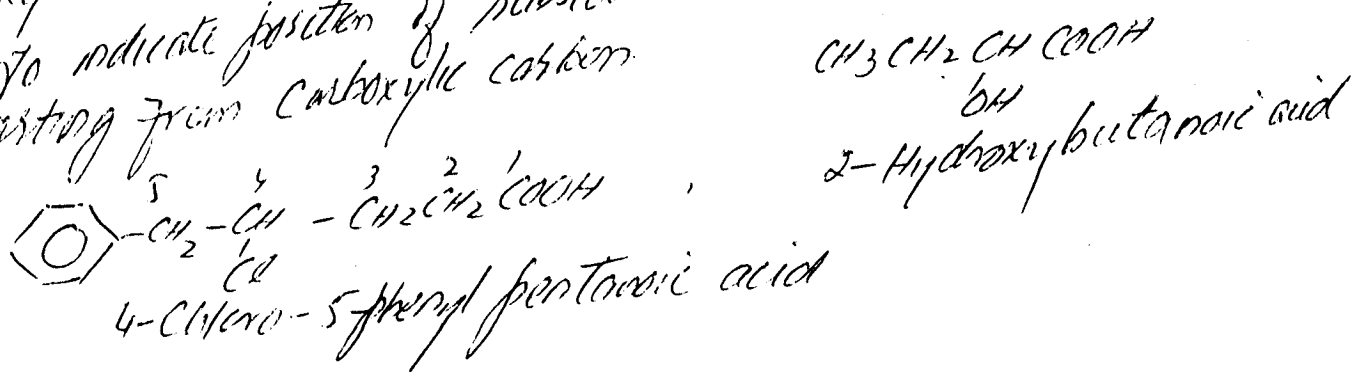 To indicate position of
starting from Carboxylic carbon
CH3 CH2 CH COOH
OH
2-Hydroxybutanoic acid
5 4 3 2 1
-CH2-CH - CH2CH2 COOH ,
Cl
4-Chloro-5-phenyl pentanoic acid